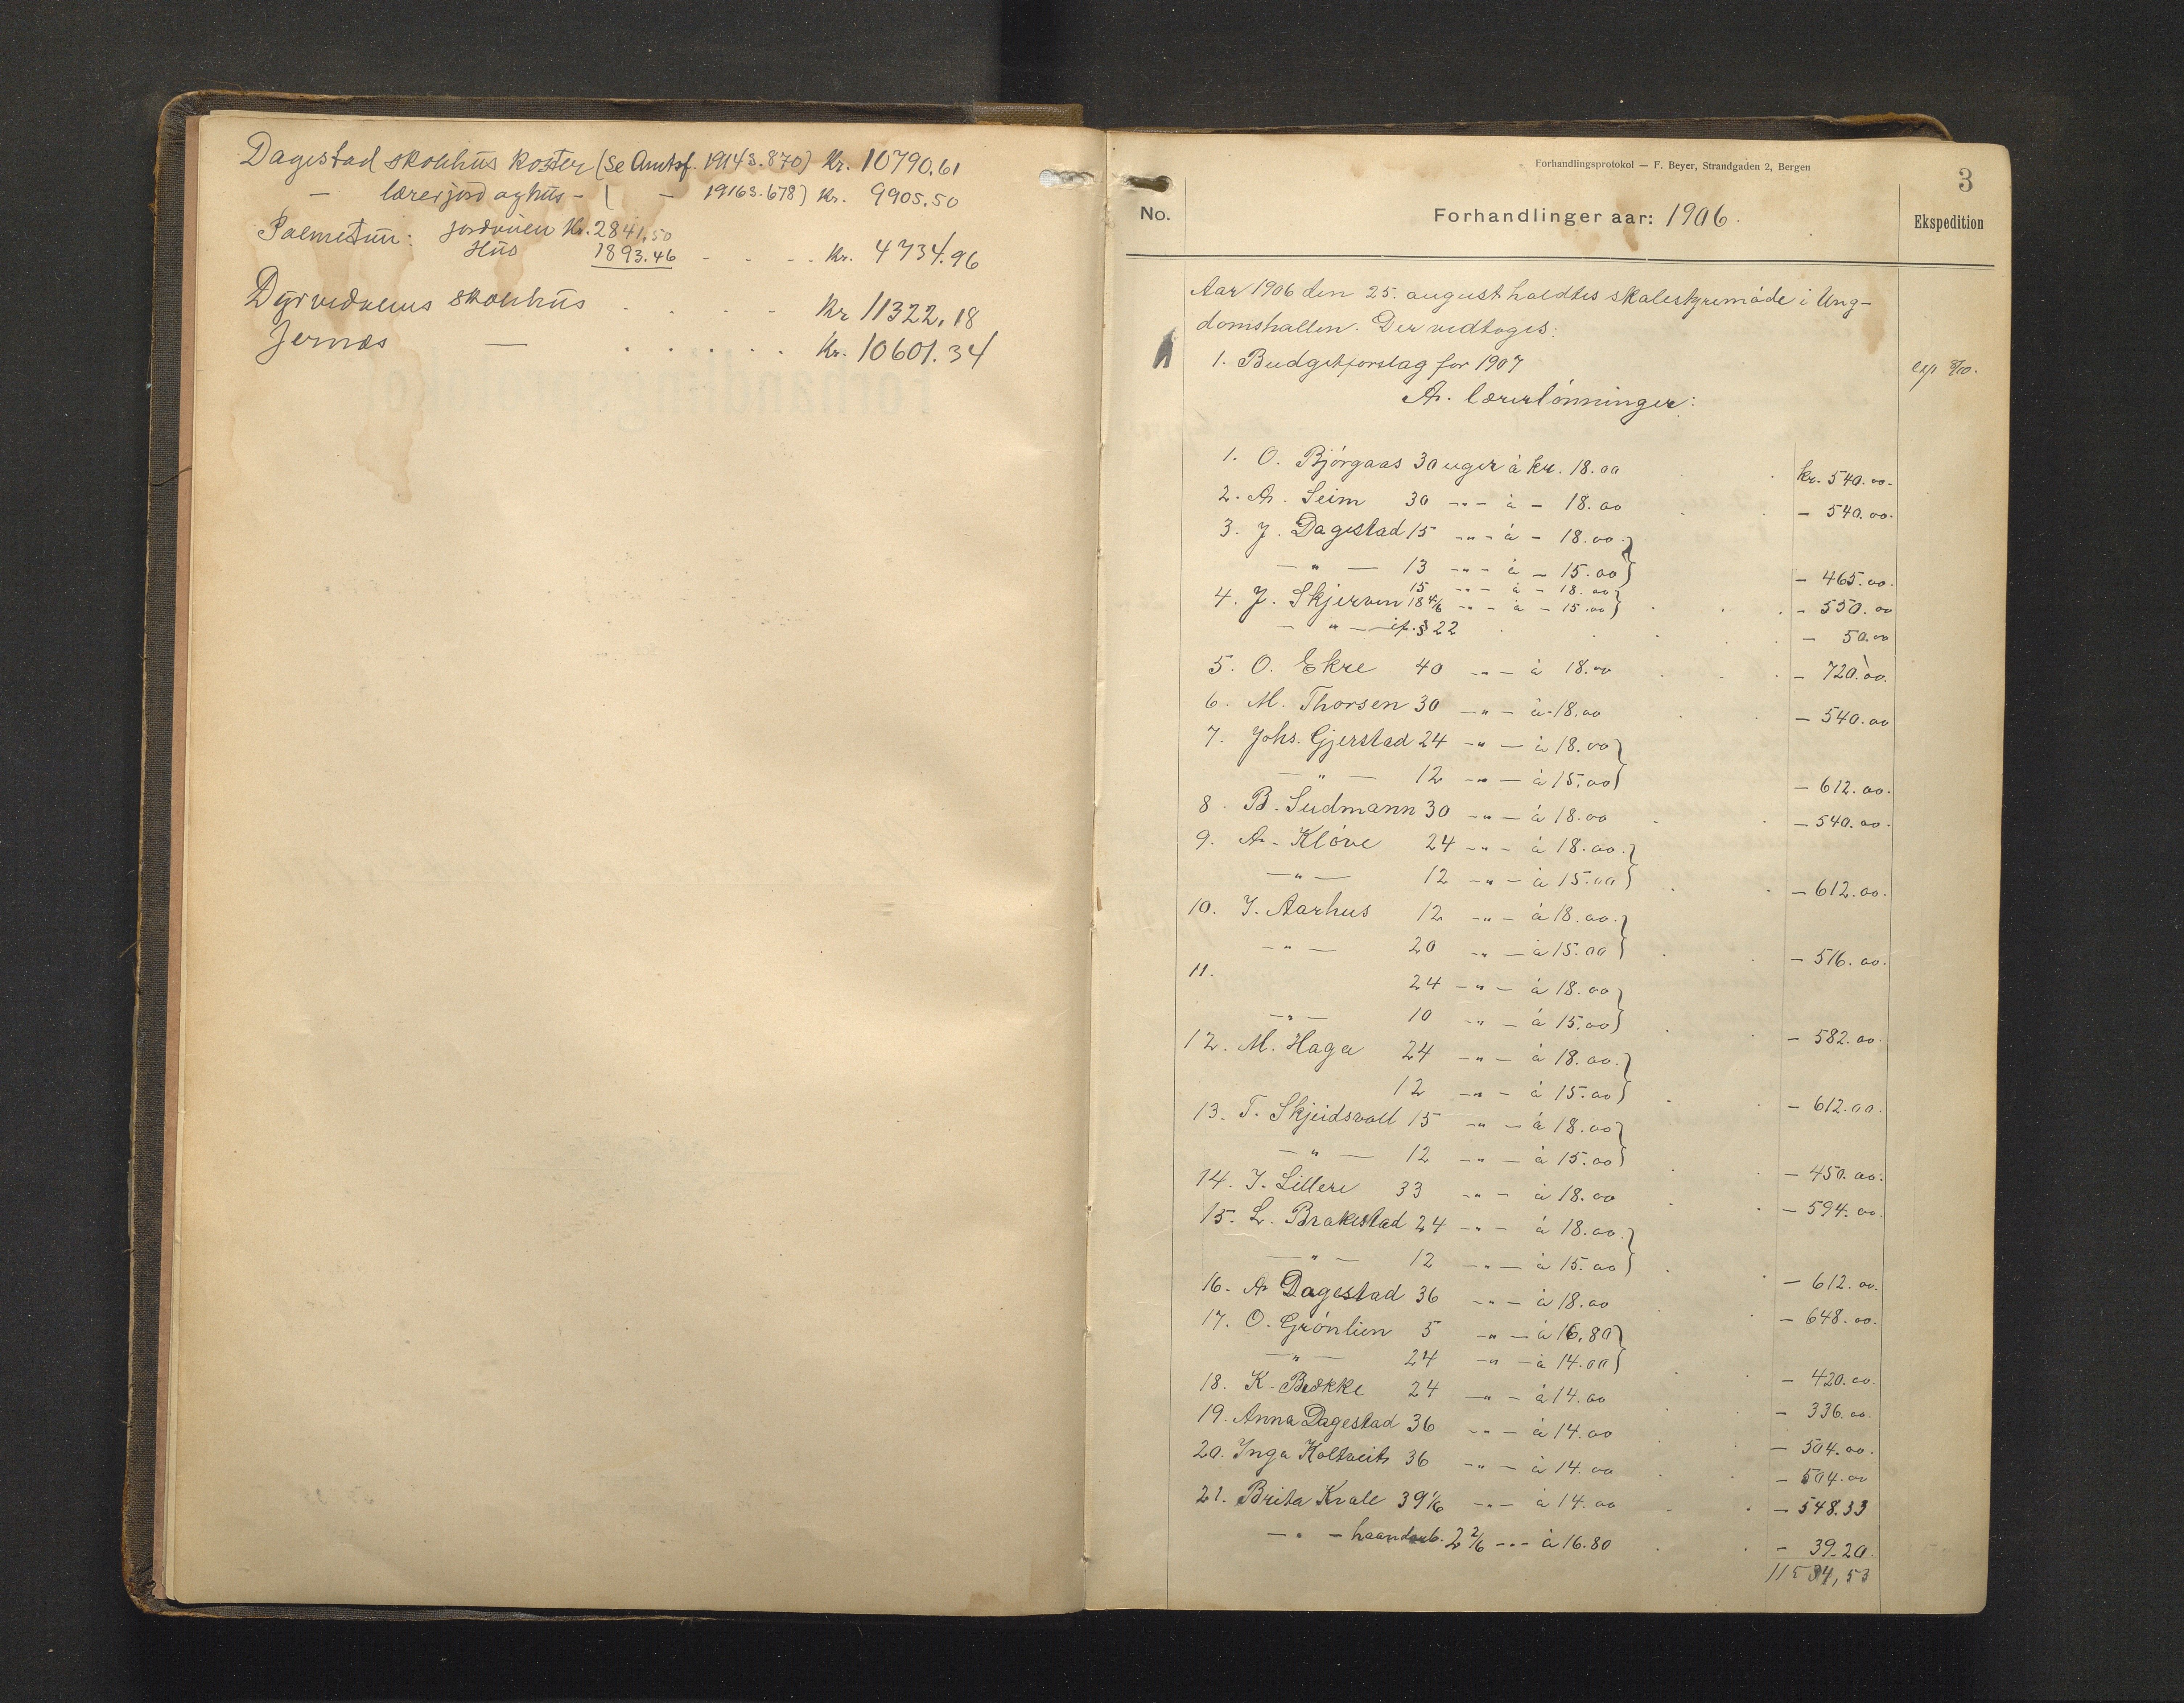 Dagestad skolehus koster (Se Amtsf. 1914 s. 870) Kr. 10790.61
— lærerjord og hus - ( — 1916 s. 678) Kr. 9905.50
Palmetun: Jordveien Kr. 2841,50
Hus 1893.46 - - - - Kr. 4734.96
Dyrvedalens skolehus . . . . Kr 11322.18
Jernæs — . . . . . . Kr. 10601.34
Forhandlingsprotokol — F. Beyer, Strandgaden 2, Bergen
3
No.
Forhandlinger aar: 1906.
Ekspedition
Aar 1906 den 25. august holdtes skolestyremøde i Ung-
domshallen. Der vedtoges:
1. Budgetforslag for 1907
exp 8/10.
A. Lærerlønninger:
1. O. Bjørgaas 30 uger à kr. 18.00 . kr. 540.00.
2. A. Seim 30 -"- à - 18.00 . . - 540.00.
3. J. Dagestad 15 -"- à - 18.00.}
— " — 13 -"- à - 15.00} - 465.00.
15 -"- à - 18.00}
4. J. Skjerven 18 4/6 -"- à - 15.00} . . . - 550.00
— " — cf. § 22 . . . . - 50.00
5. O. Ekre 40 -"- à 18.00 . . . - 720.00.
6. M. Thorsen 30 -"- à - 18.00 . . - 540.00
7. Johs. Gjerstad 24 -"- à 18.00}
— " — 12 -"- à 15.00} - 612.00.
8. B. Sudmann 30 -"- à 18.00 . . - 540.00.
9. A. Kløve 24 -"- à 18.00.}
— " — 12 -"- à 15.00} . . - 612.00.
10. I. Aarhus 12 -"- à 18.00.}
— " — 20 -"- à 15.00} . . - 516.00.
11. 24 -"- à 18.00}
— " — 10 -"- à 15.00} . . - 582.00.
12. M. Haga 24 -"- à 18.00.}
12 -"- à 15.00} . . - 612.00.
13. T. Skjeidsvoll 15 -"- à 18.00}
— " — 12 -"- à 15.00} . . - 450.00.
14. I. Lillere 33 -"- à 18.00 . . - 594.00.
15. L. Brakestad 24 -"- à 18.00.}
— " — 12 -"- à 15.00} . . - 612.00.
16. A Dagestad 36 -"- à 18.00 . . - 648.00.
17. O. Grønlien 5 -"- à 16,80}
— " — 24 -"- à 14.00} . . - 420.00.
18. K. Bække 24 -"- à 14.00 . . - 336.00.
19. Anna Dagestad 36 -"- à 14.00 . - 504.00.
20. Inga Holtveit 36 -"- à 14.00 . . - 504.00
21. Brita Kvale 39 1/6 -"- à 14.00 . . - 548.33
— " — haandarb. 2 2/6 -"- à 16.80 . . - 39.20.
11534,53